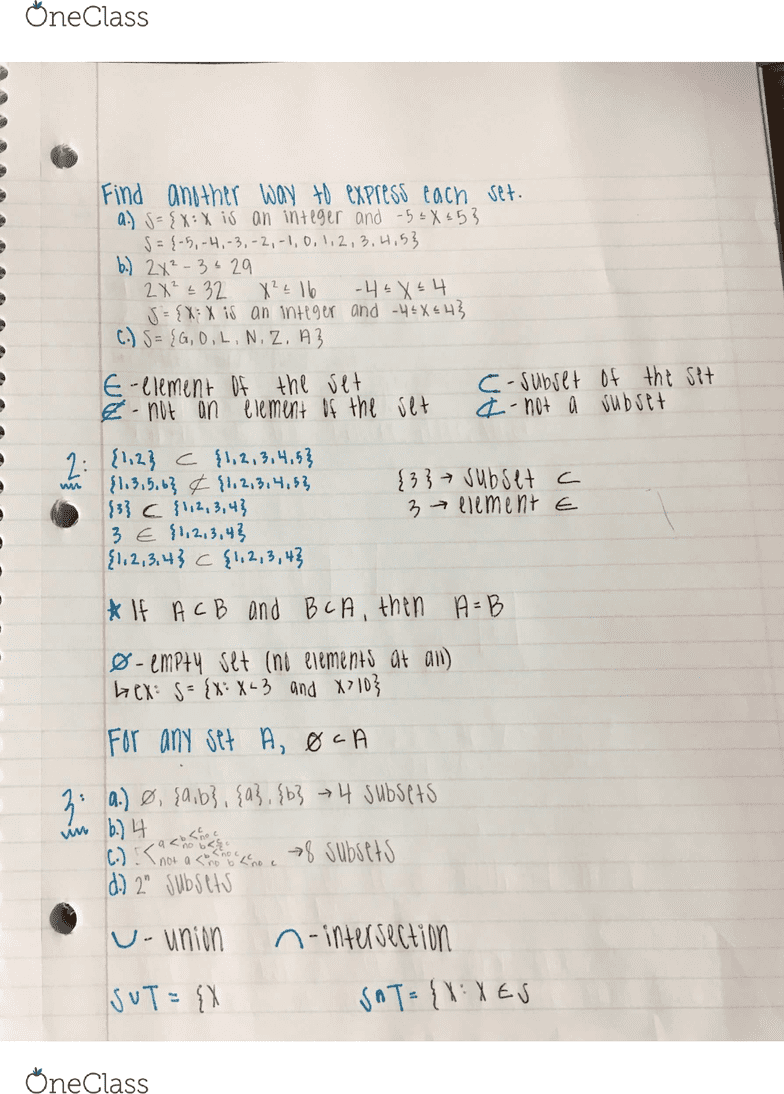 OneClass
Find another way to express each set.
a.) S={x:x is an integer and -5≤x≤5}
S={-5,-4,-3,-2,-1,0,1,2,3,4,5}
b.) 2x²-3≤29
2x²≤32 x²≤16 -4≤x≤4
S={x:x is an integer and -4≤x≤4}
c.) S={G,O,L,N,Z,A}
∈-element of the set ⊂-subset of the set
∉-not an element of the set ⊄-not a subset
2: {1,2} ⊂ {1,2,3,4,5}
{1,3,5,6} ⊄ {1,2,3,4,5} {3}→subset ⊂
{3} ⊂ {1,2,3,4} 3→element ∈
3 ∈ {1,2,3,4}
{1,2,3,4} ⊂ {1,2,3,4}
★ If A⊂B and B⊂A, then A=B
∅-empty set (no elements at all)
↳ex: S={x:x<3 and x>10}
For any set A, ∅⊂A
3: a.) ∅, {a,b}, {a}, {b} →4 subsets
b.) 4
c.) :< a < b < c no c no b < c no c not a < b < c no c no b < c no c →8 subsets
d.) 2ⁿ subsets
∪-union ∩-intersection
S∪T={x S∩T={x:x∈S
OneClass